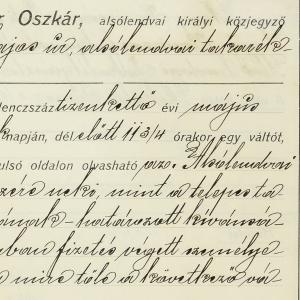 r Oszkár, alsólendvai királyi közjegyző
ajos úr, alsólendvai takarék-
lenczszáz tizenkettő évi május
napján, dél előtt 11 3/4 órakor egy váltót,
ulsó oldalon olvasható az. Alsólendvai
zére neki, mint a telepes ta
ának - határozott kívánsá-
ban fizetés végett személye-
s mire tőle a következő vá-